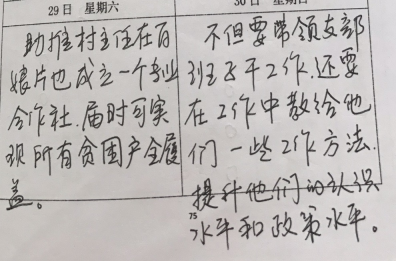 29日 星期六
助推村主任在百
娘片也成立一个专业
合作社.届时可实
现所有贫困户全覆
盖。
30日 星期日
不但要带领支部
班子干工作.还要
在工作中教给他
们一些工作方法.
提升他们的认识
75
水平和政策水平。